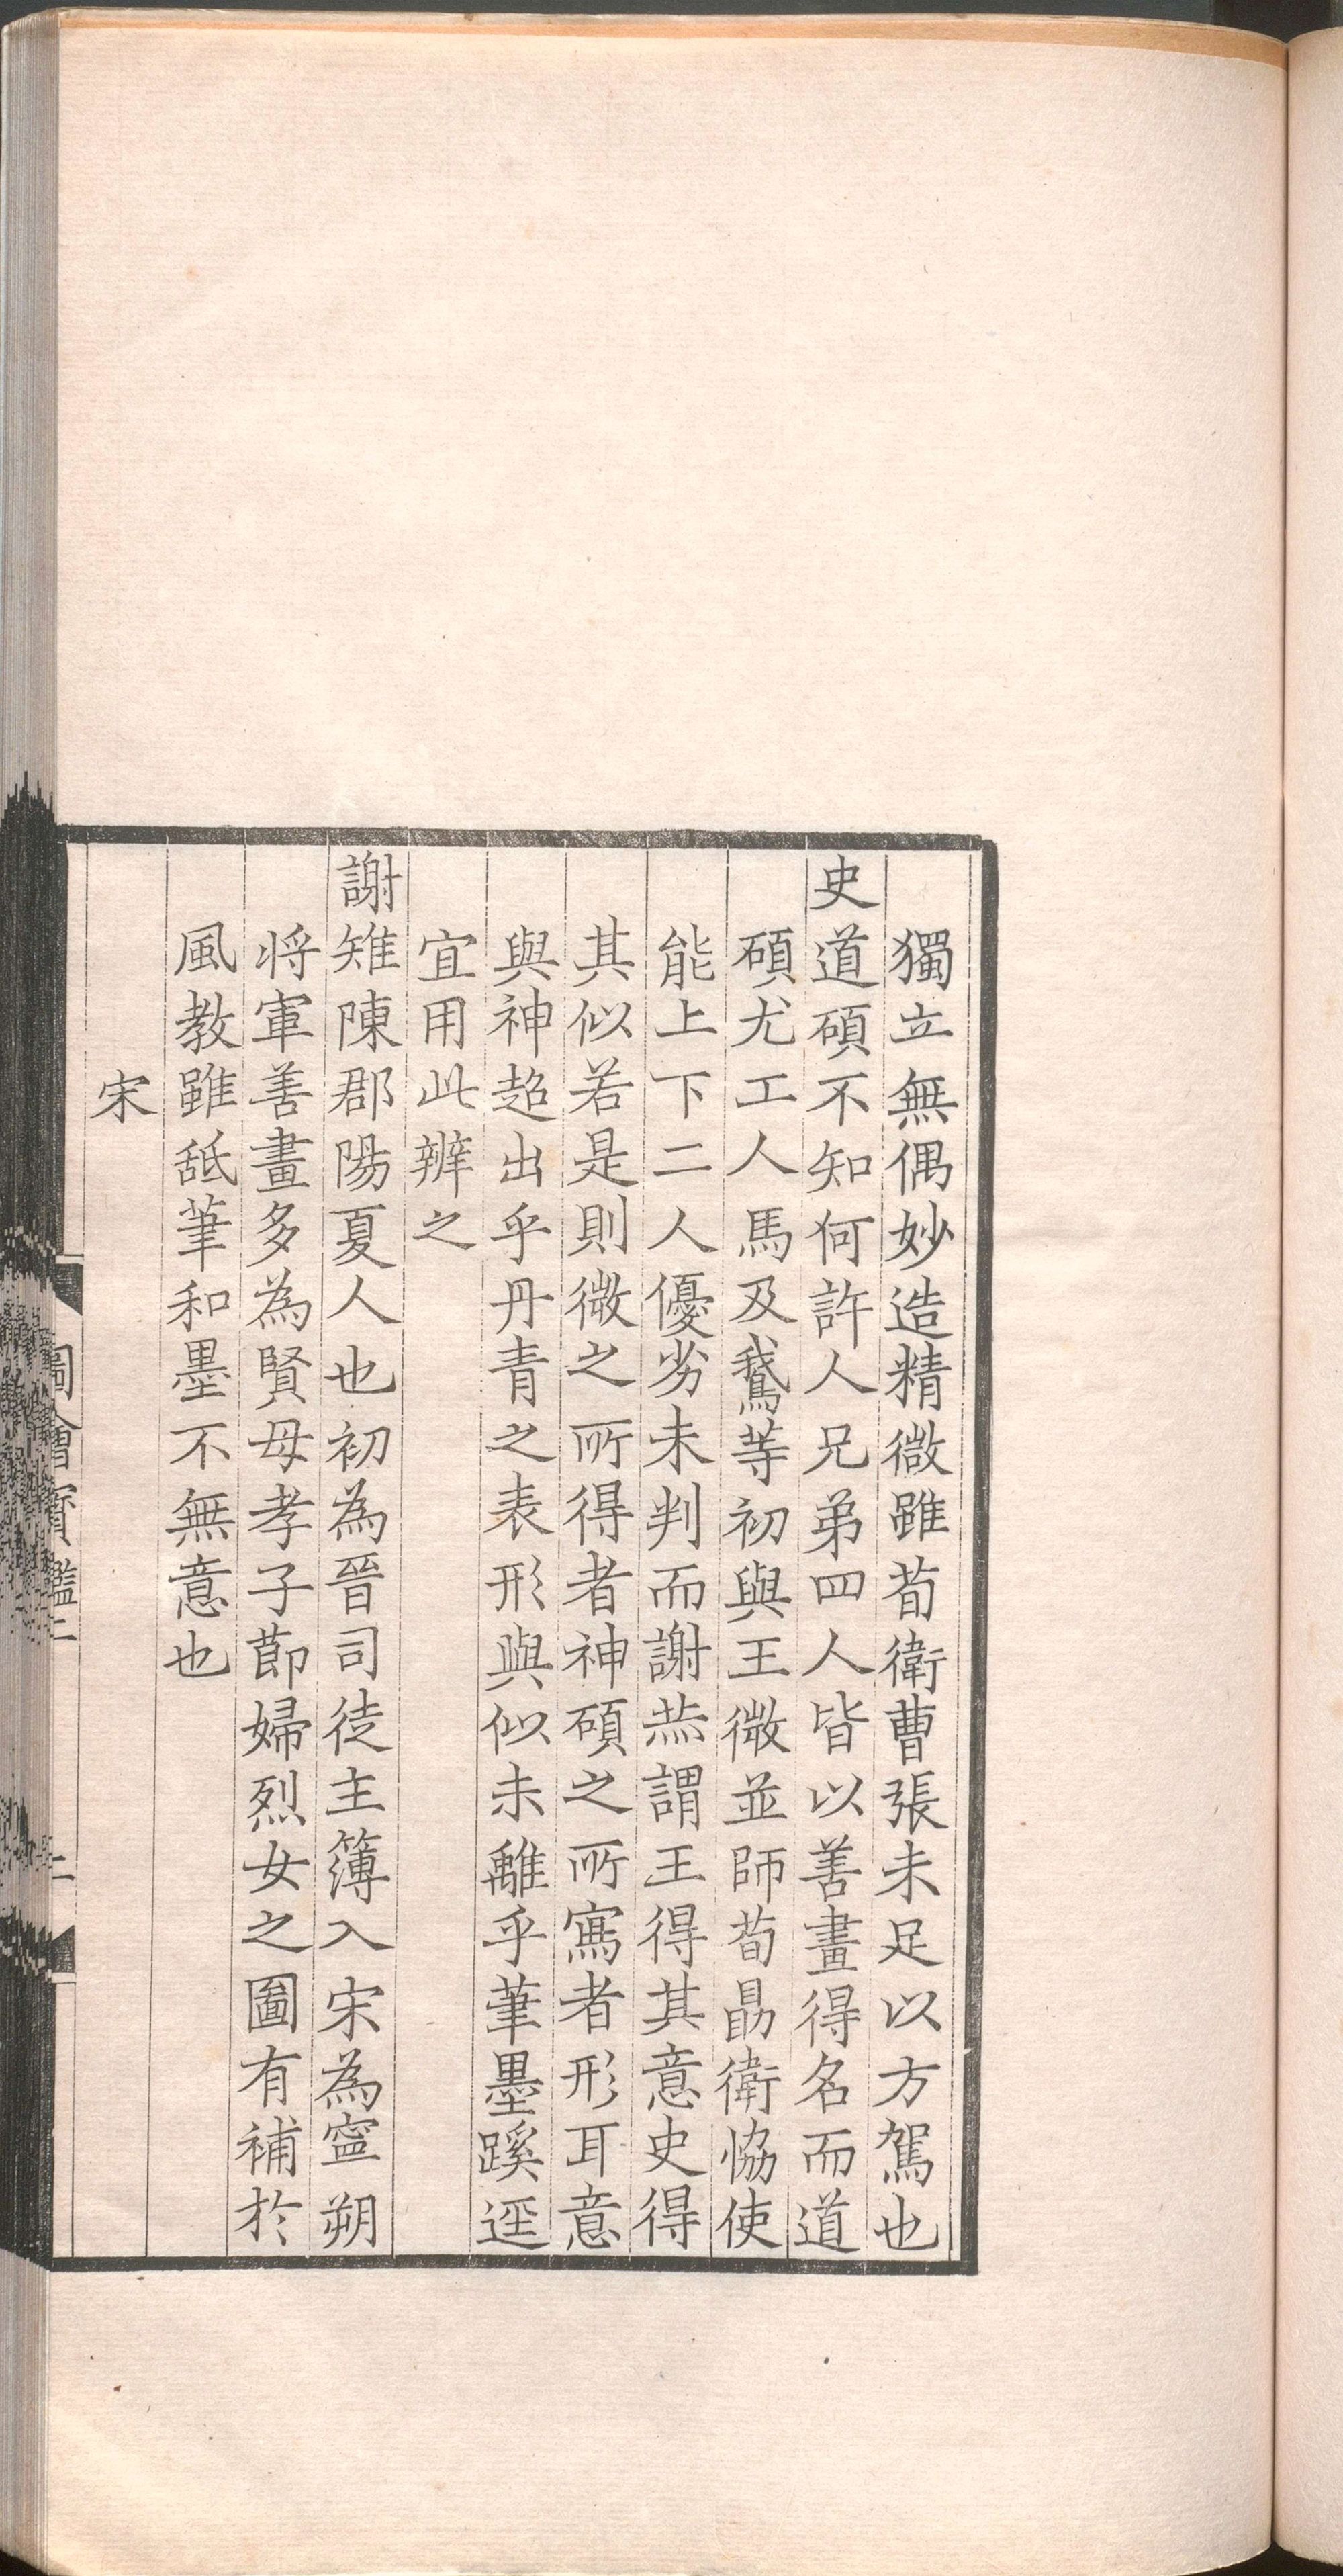 獨立無偶妙造精微雖荀衛曹張未足以方駕也
史道碩不知何許人兄弟四人皆以善畫得名而道
碩尤工人馬及鵝等初與王微並師荀勗衛恊使
能上下二人優劣未判而謝赫謂王得其意史得
其似若是則微之所得者神碩之所寫者形耳意
與神超出乎丹青之表形與似未離乎筆墨蹊逕
宜用此辨之
謝雉陳郡陽夏人也初為晉司徒主簿入宋為寧朔
将軍善畫多為賢母孝子節婦烈女之圖有補於
風教雖舐筆和墨不無意也
宋
圖繪寳鑑二
二